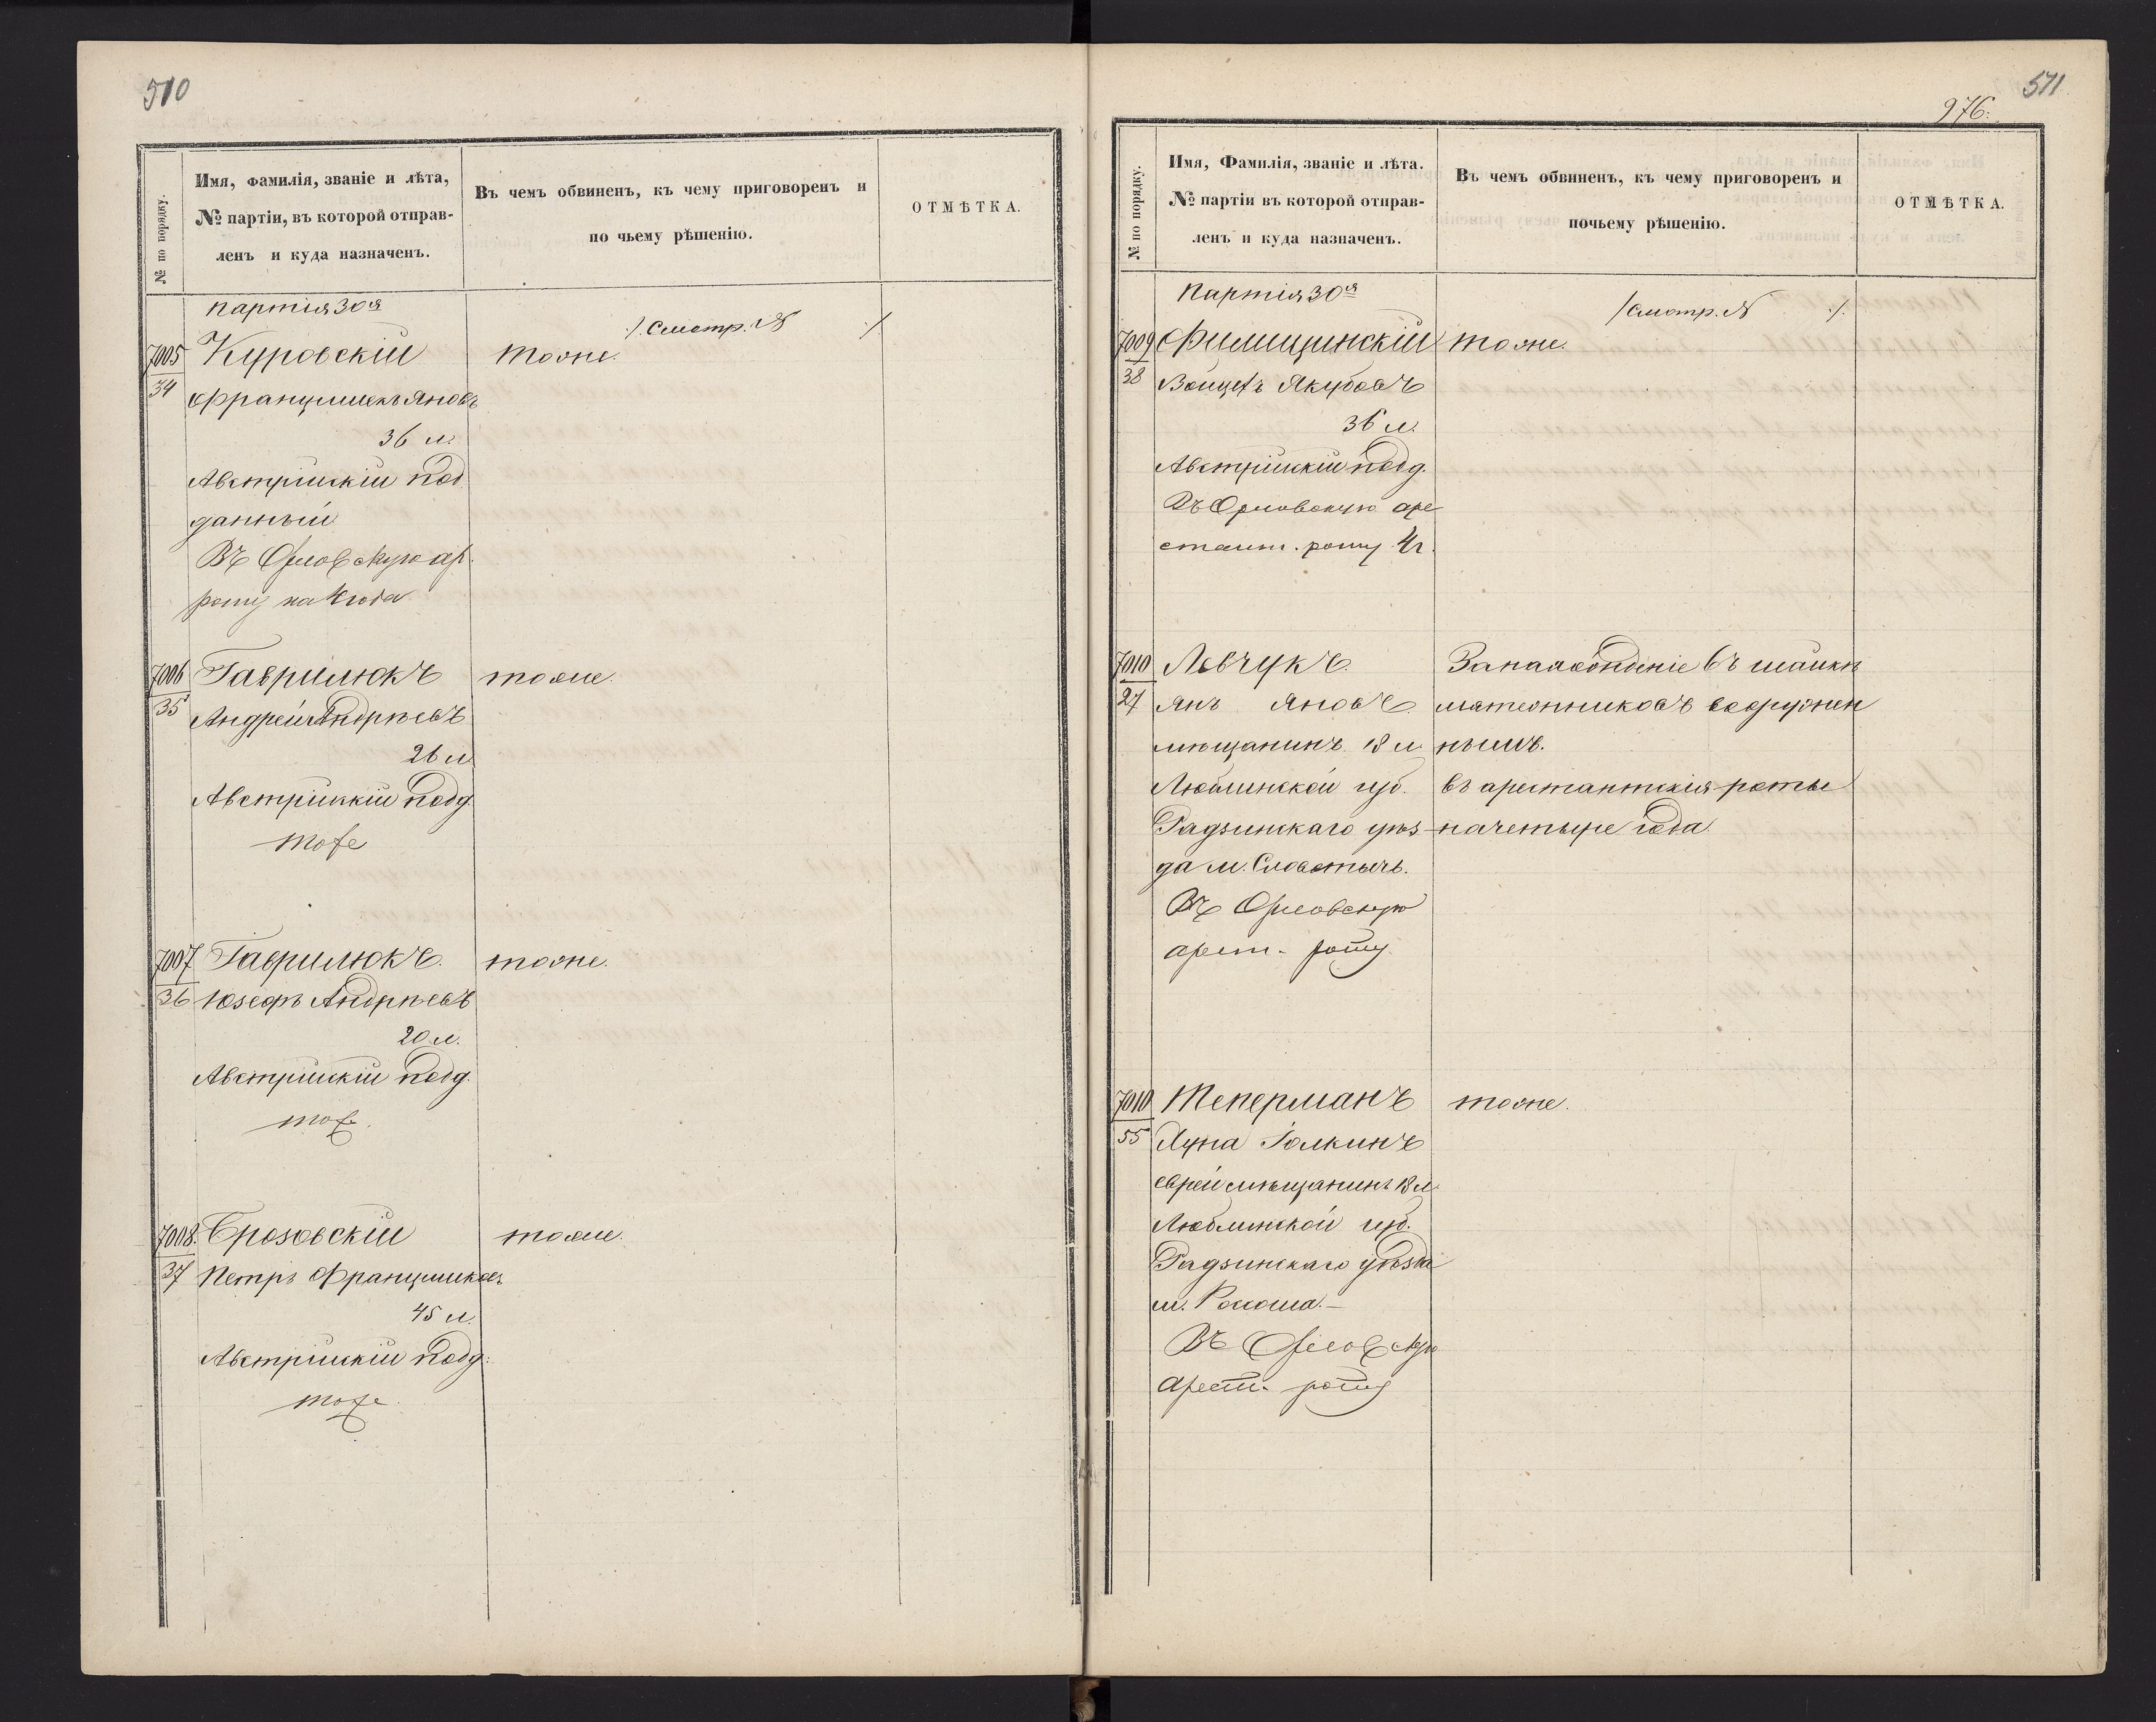 510
№ по порядку.
Имя, фамилія, званіе и лѣта,
№ партіи, въ которой отправ-
ленъ и куда назначенъ.
Въ чемъ обвиненъ, къ чему приговоренъ и
по чьему рѣшенію.
ОТМѢТКА.
партія 30я
/. Смотр. № ./
7005
34
Куровскій
тоже.
Францишекъ Яновъ
36 л.
Австрійскій под
данный
Въ Орловскую ар.
роту на 4 года
7006
35
Гаврилюкъ
тоже.
Андрей Андрѣевъ
26 л
Австрійскій подд.
тоже
7007
36
Гаврилюкъ.
тоже.
Юзефъ Андрѣевъ
20 л.
Австрійскій подд.
тоже.
7008.
37
Брозовскій
тоже.
Петръ Францишковъ
45 л.
Австрійскій подд.
тоже.
511
976.
№ по порядку.
Имя, Фамилія, званіе и лѣта.
№ партіи въ которой отправ-
ленъ и куда назначенъ.
Въ чемъ обвиненъ, къ чему приговоренъ и
почьему рѣшенію.
ОТМѢТКА.
Партія 30я
/Смотр. № ./.
7009
38
Филищинскій
тоже.
Войцехъ Якубовъ
36 л.
Австрійскій подд.
Въ Орловскую аре
стант. роту 4 г.
7010
27
Левчукъ.
Янъ Яновъ.
мѣщанинъ 18 л
Люблинской губ.
Радзинскаго уѣз
да м. Словатычъ.
Въ Орловскую
арест. роту.
За нахожденіе въ шайкѣ
мятежниковъ вооружен
нымъ.
въ арестантскія роты
на четыре года.
7010
55
Теперманъ
тоже.
Хуна Іолкинъ
еврей мѣщанинъ 18 л.
Люблинской губ.
Радзинскаго уѣзда
м. Россоша.–
Въ Орловскую
арест. роту